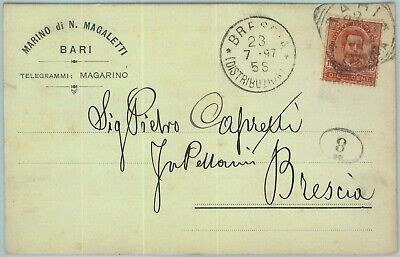 MARINO di N. MAGALETTI
BARI
TELEGRAMMI: MAGARINO
BRESCIA
23
7-97
5S
(DISTRIBUZ
BARI
8
Sig Pietro Capretti
Brescia